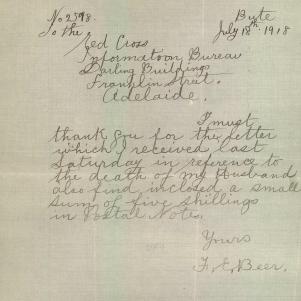 No 2598.
Byte
To the
July 18th 1918
Red Cross
Information Bureau
Darling Buildings
Franklin Street.
Adelaide.
I must
thank you for the letter
which I received last
Saturday in reference to
the death of my Husband
also find inclosed a small
sum of five shillings
in Postal Notes.
Yours
F. E. Beer.